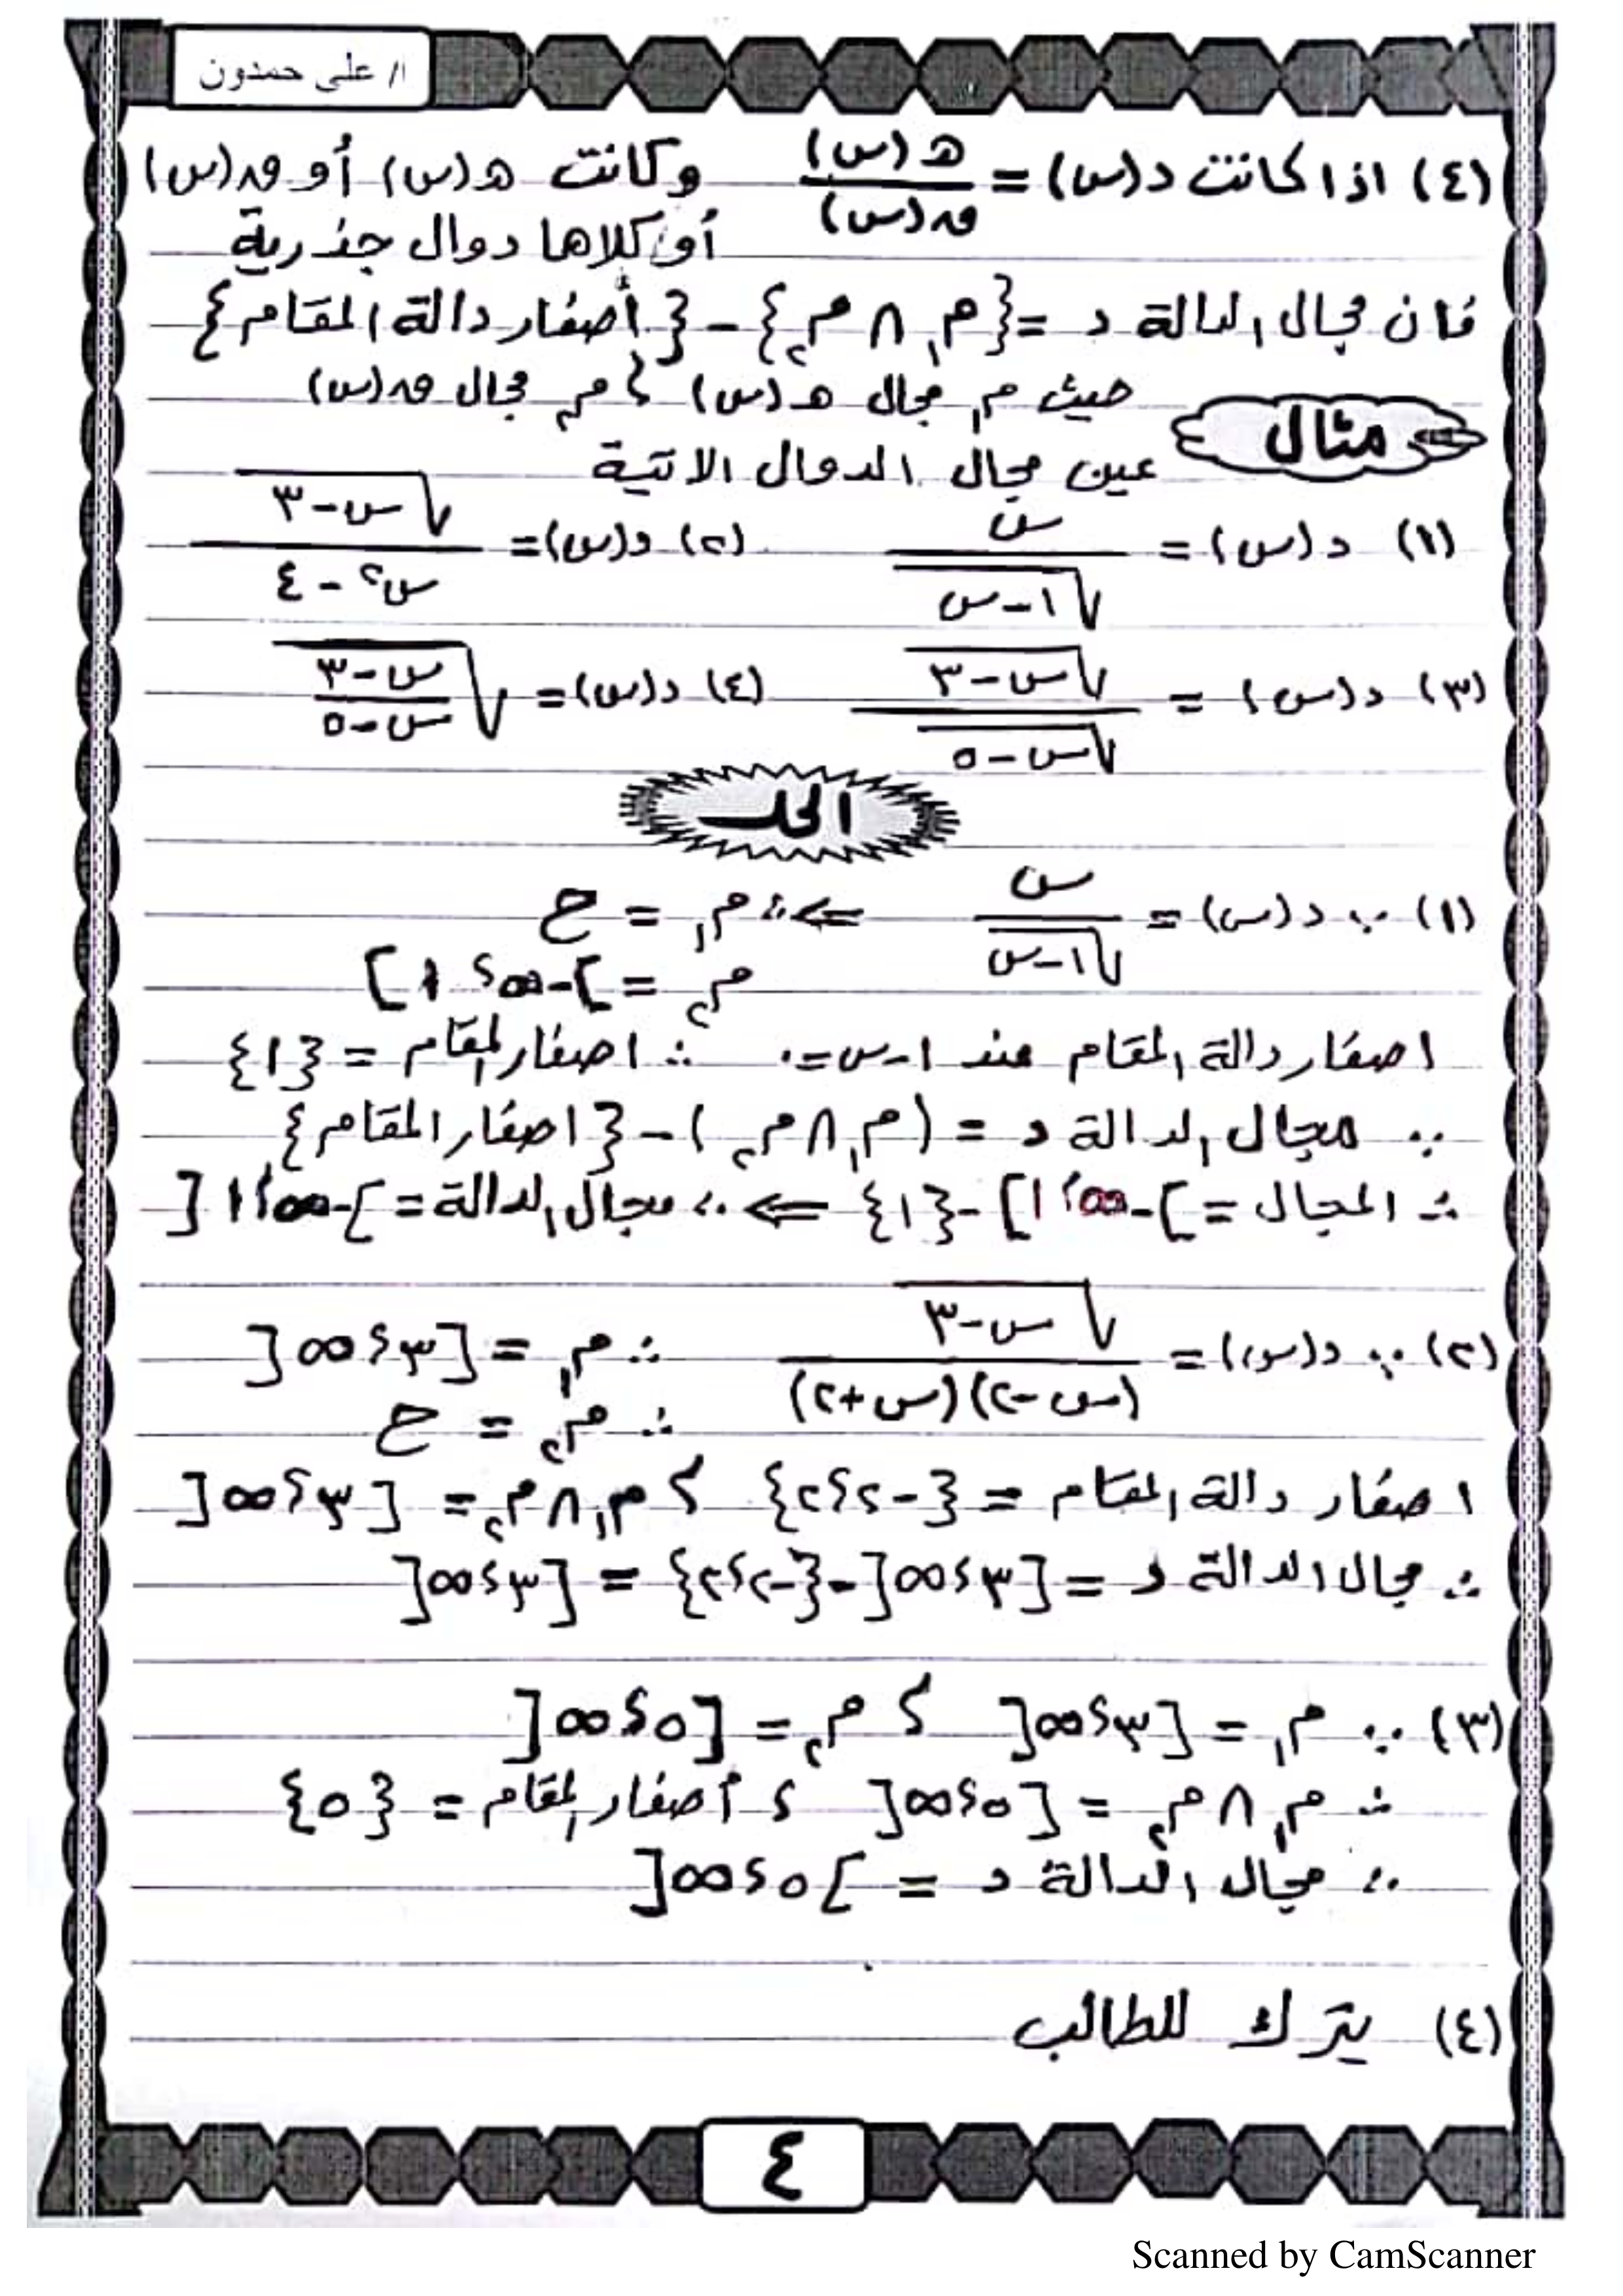 ا/ على حمدون
(٤) اذا كانت د(س) = هـ(س) / ق(س) وكانت هـ(س) أو ق(س)
أو كلاها دوال جذرية
فان مجال الدالة د = {م١ ∩ م٢} - {أصفار دالة المقام}
حيث م١ مجال هـ(س) ؛ م٢ مجال ق(س)
مثال
عين مجال الدوال الاتية
(١) د(س) = س / √(١-س) (٢) د(س) = √(س-٣) / (س٢ - ٤)
(٣) د(س) = √(س-٣) / √(س-٥) (٤) د(س) = √((س-٣) / (س-٥))
الحل
(١) ∵ د(س) = س / √(١-س) ⇐ ∴ م١ = ح
م٢ = ]-∞ ؛ ١]
اصفار دالة المقام عند ١-س=٠ ∴ اصفار المقام = {١}
∵ مجال الدالة د = (م١ ∩ م٢) - {اصفار المقام}
∴ المجال = ]-∞ ؛ ١] - {١} ⇐ ∴ مجال الدالة = ]-∞ ؛ ١[
(٢) ∵ د(س) = √(س-٣) / (س-٢)(س+٢) ∴ م١ = [٣ ؛ ∞[
∴ م٢ = ح
اصفار دالة المقام = {-٢ ؛ ٢} ؛ م١ ∩ م٢ = [٣ ؛ ∞[
∴ مجال الدالة د = [٣ ؛ ∞[ - {-٢ ؛ ٢} = [٣ ؛ ∞[
(٣) ∵ م١ = [٣ ؛ ∞[ ؛ م٢ = [٥ ؛ ∞[
∴ م١ ∩ م٢ = [٥ ؛ ∞[ ؛ أصفار المقام = {٥}
∴ مجال الدالة د = ]٥ ؛ ∞[
(٤) يترك للطالب
٤
Scanned by CamScanner